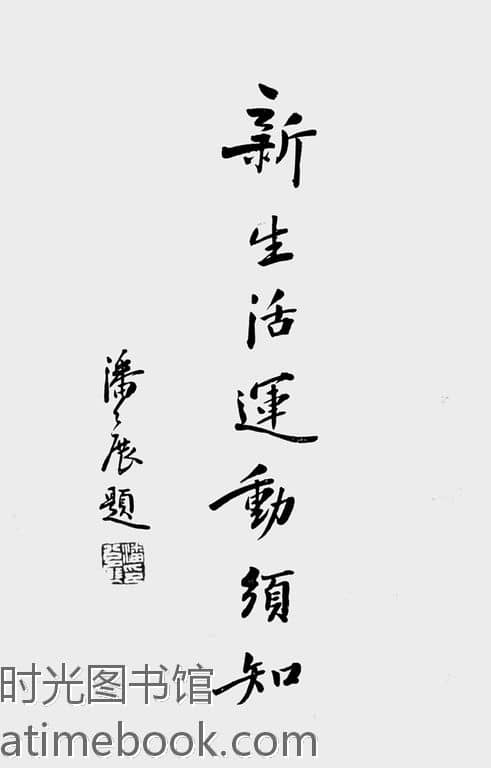 新生活運動須知
潘公展題
时光图书馆
atimebook.com